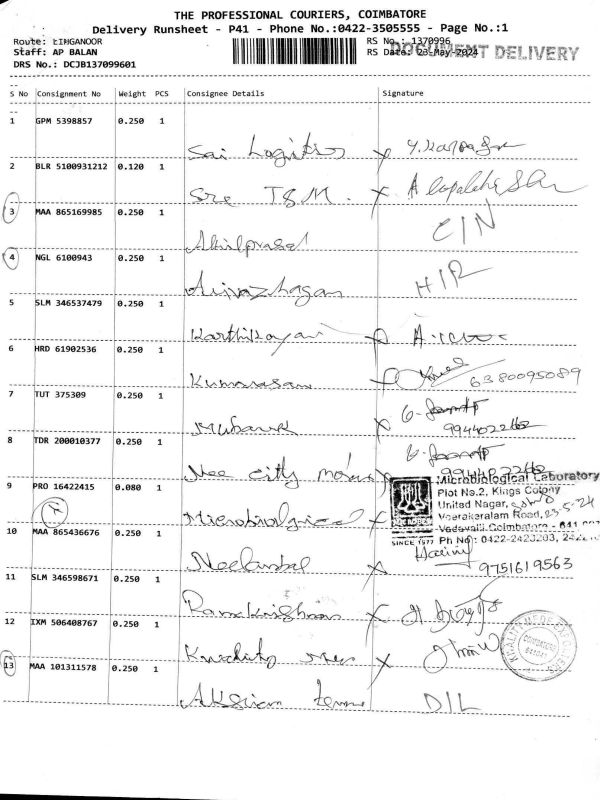 THE PROFESSIONAL COURIERS, COIMBATORE
Delivery Runsheet - P41 - Phone No.:0422-3505555 - Page No.:1
Route: LINGANOOR
RS No.: 1370996
Staff: AP BALAN
RS Date: 23-May-2024
DOCUMENT DELIVERY
DRS No.: DCJB137099601
S No Consignment No Weight PCS Consignee Details Signature
1 GPM 5398857 0.250 1
Sai Logitics
2 BLR 5100931212 0.120 1
Sre T.S.M.
3 MAA 865169985 0.250 1
Akilprasat
C/N
4 NGL 6100943 0.250 1
H/R
5 SLM 346537479 0.250 1
Karthikayan
6 HRD 61902536 0.250 1
Kumarasam
6380095089
7 TUT 375309 0.250 1
Mubarak
9944022462
8 TDR 200010377 0.250 1
Nee city motors
9944022462
9 PRO 16422415 0.080 1
Microbiological
Microbiological Laboratory
Plot No.2, Kings Colony
United Nagar,
Veerakeralam Road, 23-5-24
Vadavalli, Coimbatore - 641 007
SINCE 1977 Ph No: 0422-2423203,
10 MAA 865436676 0.250 1
9751619563
11 SLM 346598671 0.250 1
Ramakrishnan
12 IXM 506408767 0.250 1
13 MAA 101311578 0.250 1
D/L